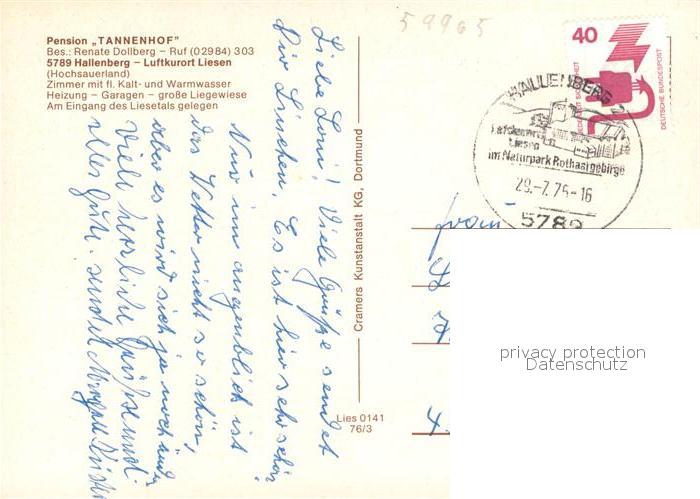 59965
Pension „TANNENHOF"
Bes.: Renate Dollberg – Ruf (02984) 303
5789 Hallenberg – Luftkurort Liesen
(Hochsauerland)
Zimmer mit fl. Kalt- und Warmwasser
Heizung – Garagen – große Liegewiese
Am Eingang des Liesetals gelegen
Liebe Loni! Viele Grüße sendet
Dir Linchen. Es ist hier sehr schön
Nur im augenblick ist
das Wetter nicht so schön,
aber es wird sich ja noch
Viele herzliche Grüße und
alles Gute. sendet
Cramers Kunstanstalt KG, Dortmund
Lies 0141
76/3
40
DEUTSCHE BUNDESPOST
HALLENBERG 2
Liesen
im Naturpark Rothaargebirge
29.-7.76-16
5789
privacy protection
Datenschutz